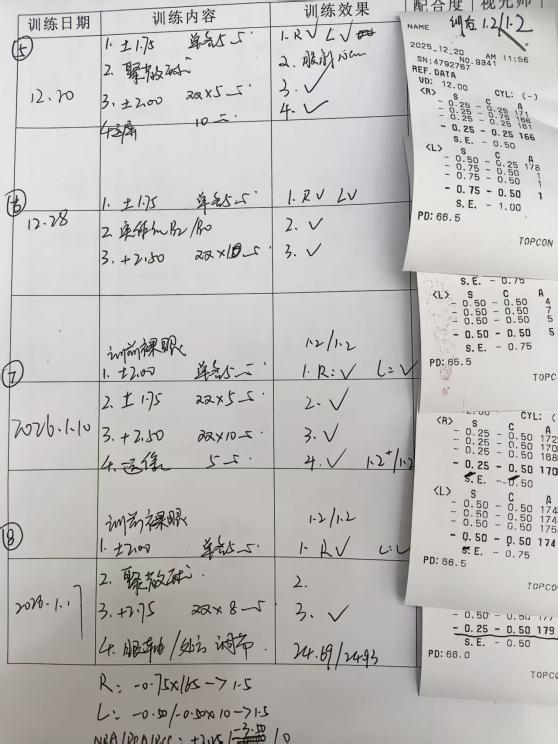 训练日期 训练内容 训练效果 配合度 视光师
⑤
12.20
1. ±1.75 单各5
2. 聚散球
3. ±2.00 双x5
10
1. R√ L√
2.
3. √
4. √
⑥
12.28
1. ±1.75 单各5
2. BI/BO
3. +2.50 双x10
1. R√ L√
2. √
3. √
⑦
2026.1.10
训前裸眼 1.2/1.2
1. ±2.00 单各5
2. ±1.75 双x5
3. +2.50 双x10
4.
1. R:√ L:√
2. √
3. √
4. √ 1.2⁺/1.2
⑧
2026.1.17
训前裸眼 1.2/1.2
1. ±2.00 单各5
2. 聚散球
3. +2.75 双x8
4. 眼轴/ 调节
1. R√ L:√
2.
3. √
24.69/24.93
R: -0.75x165→1.5
L: -0.50/-0.50x10→1.5
NAME 1.2/1.2
2025_12_20 AM 11:56
SN:4792767 NO.9341
REF.DATA
VD: 12.00 CYL: (-)
<R> S C A
- 0.25 - 0.25 171
- 0.25 - 0.75 166
- 0.25 - 0.50 161
- 0.25 - 0.50 166
S.E. - 0.50
<L> S C A
- 0.50 - 0.25 178
- 0.75 - 0.50 1
- 0.75 - 0.50 1
- 0.75 - 0.50 1
S.E. - 1.00
PD: 66.5
TOPCON
S.E. - 0.75
<L> S C A
- 0.50 - 0.50 4
- 0.50 - 0.50 7
- 0.50 - 0.50 5
- 0.50 - 0.50 5
S.E. - 0.75
PD: 65.5
TOPC
CYL: (
<R> S C A
- 0.25 - 0.50 172
- 0.25 - 0.50 170
- 0.25 - 0.50 168
- 0.25 - 0.50 170
S.E. - 0.50
<L> S C A
- 0.50 - 0.50 174
- 0.50 - 0.50 174
- 0.50 - 0.50 175
- 0.50 - 0.50 174
S.E. - 0.75
PD: 66.5
TOPCO
- 0.50 - 0.50 177
- 0.25 - 0.50 179
S.E. - 0.50
PD: 66.0
TOPCO